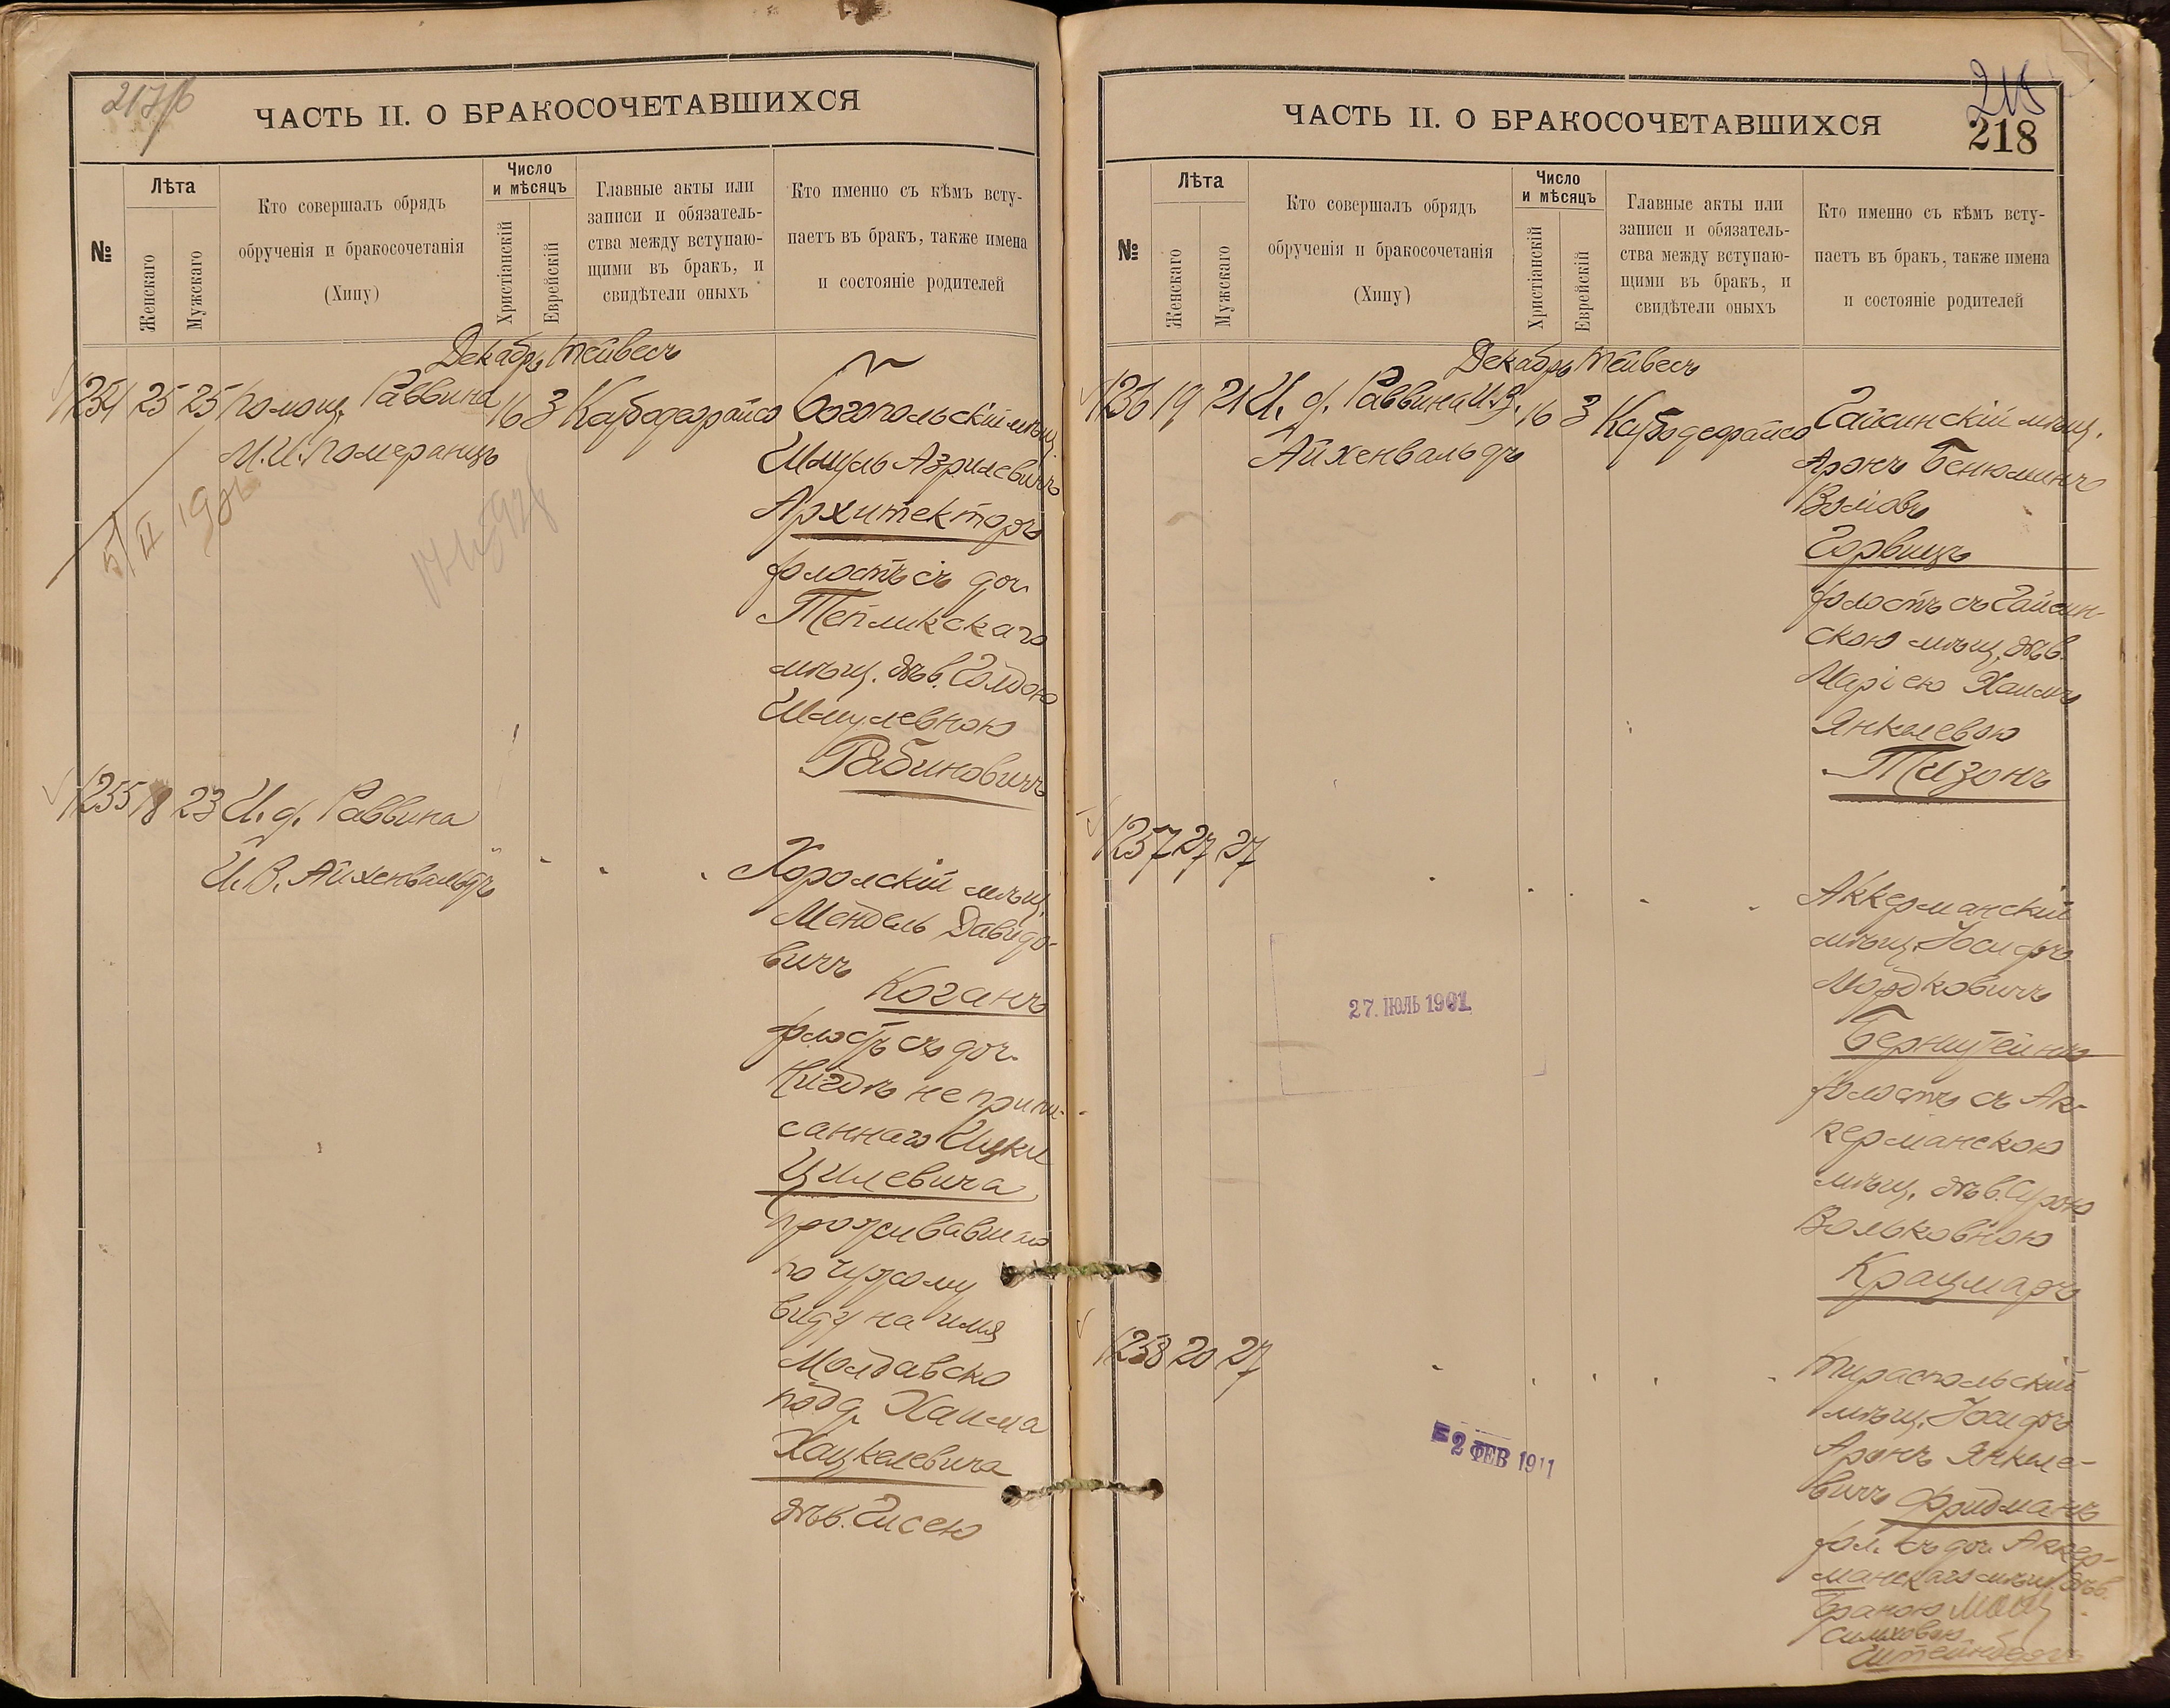 217/6
ЧАСТЬ II. О БРАКОСОЧЕТАВШИХСЯ
№
Лѣта
Женскаго
Мужскаго
Кто совершалъ обрядъ
обрученія и бракосочетанія
(Хипу)
Число
и мѣсяцъ
Христіанскій
Еврейскій
Главные акты или
записи и обязатель-
ства между вступаю-
щими въ бракъ, и
свидѣтели оныхъ
Кто именно съ кѣмъ всту-
паетъ въ бракъ, также имена
и состояніе родителей
Декабрь Тейвесъ
1254 25 25 Помощ. Раввина 16 3
М. И. Померанцъ
Богопольскій мѣщ.
Шмуль Азрилевичъ
Архитекторъ
холостъ съ доч.
Тепликскаго
мѣщ. дѣв. Голдою
Шмулевною
Рабиновичъ
1255 18 23 И. д. Раввина
И. В. Айхенвальдъ
Хоролскій мѣщ.
Мендель Давидо-
вичъ
Коганъ
холостъ съ доч.
нигдѣ не припи-
саннаго Ицки
Цилевича,
проживавшаго
по чужому
виду на имя
Молдавско
подд. Хаима
Хацкелевича
дѣв. Гисею
ЧАСТЬ II. О БРАКОСОЧЕТАВШИХСЯ
218
№
Лѣта
Женскаго
Мужскаго
Кто совершалъ обрядъ
обрученія и бракосочетанія
(Хипу)
Число
и мѣсяцъ
Христіанскій
Еврейскій
Главные акты или
записи и обязатель-
ства между вступаю-
щими въ бракъ, и
свидѣтели оныхъ
Кто именно съ кѣмъ всту-
паетъ въ бракъ, также имена
и состояніе родителей
Декабрь Тейвесъ
1256 19 21 И. д. Раввина И. В. 16 3
Айхенвальдъ
Гайсинскій мѣщ.
Аронъ Бенюминъ
Волювъ
Горвицъ
холостъ съ Гайсин-
скою мѣщ. дѣв.
Маріею Хаимъ
Янкелевою
Тизонъ
1257 27 27
Аккерманскій
мѣщ. Іосифъ
Мордковичъ
Бернштейнъ
холостъ съ Ак-
керманскою
мѣщ. дѣв. Сурою
Вольковною
Крацмаръ
27. ІЮЛЬ 1901
1258 20 27
Тираспольскій
мѣщ. Іосифъ
Аронъ Янкеле-
вичъ Фридманъ
хол. съ доч. Аккер-
манскаго мѣщ. дѣв.
Браною
Симховою
Штейнбергъ
2 ФЕВ 1911